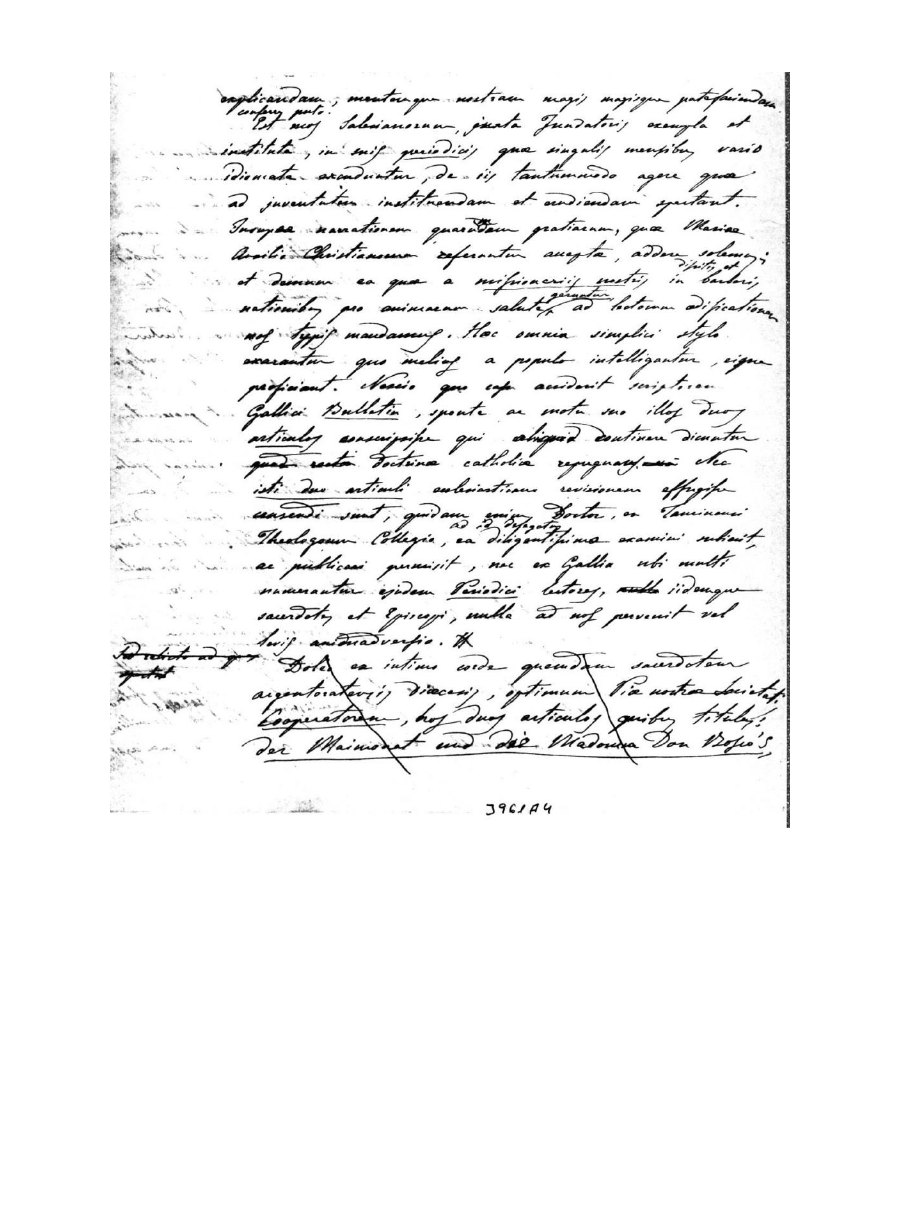 explicandam, mentemque nostram magis magisque patefaciendam
conferre puto.
Est mos Salesianorum, juxta Fundatoris exempla et
instituta, in suis periodicis quae singulis mensibus vario
idiomate exeduntur, de iis tantummodo agere quae
ad juventutem instituendam et erudiendam spectant.
Insuper narrationem quarumdam gratiarum, quae Mariae
Auxilio Christianorum referuntur acceptae, addere solemus;
et demum ea quae a missionariis nostris in dissitis et barbaris
nationibus pro animarum salute geruntur, ad lectorum aedificationem
nos typis mandamus. Haec omnia simplici stylo
exarantur quo melius a populo intelligantur, eique
proficiant. Nescio quo casu acciderit scriptorem
Gallici Bulletin, sponte ac motu suo illos duos
articulos conscripsisse qui aliquid continere dicuntur
doctrinae catholicae repugnans. Nec
isti duo articuli ecclesiasticam revisionem effugisse
censendi sunt, quidam enim Doctor, ex Taurinensi
Theologorum Collegio, ad id delegatus ea diligentissimo examini subiecit,
ac publicari permisit, nec ex Gallia ubi multi
numerantur ejusdem Periodici lectores, nullo iidemque
sacerdotes et Episcopi, nulla ad nos pervenit vel
levis animadversio.
Sed relicto ad quos
spectat
Doleo ex intimo corde quemdam sacerdotem
argentoratensis Dioecesis, optimum Piae nostrae Societatis
Cooperatorem, hos duos articulos quibus titulus:
der Maimonat und die Madonna Don Bosco's,
3961A4